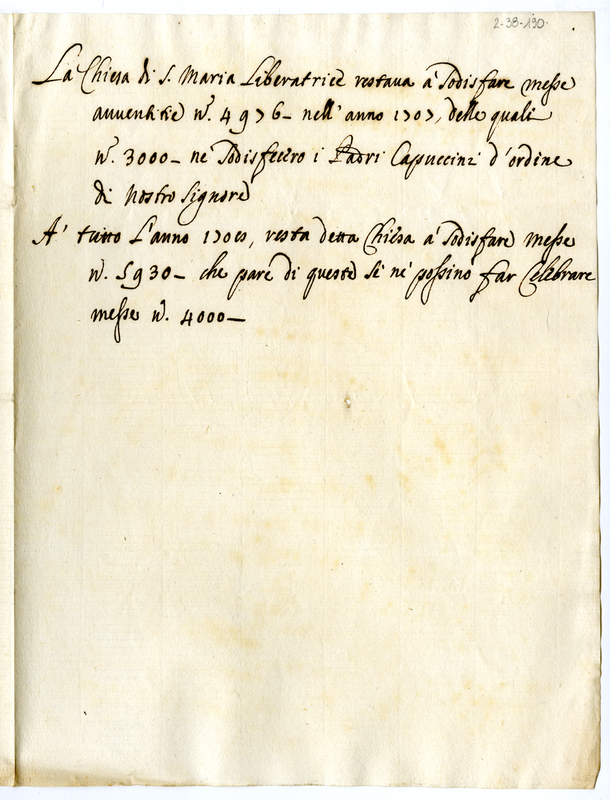 2-38-190.
La Chiesa di S. Maria Liberatrice restaua à Sodisfare messe
auuentitie N.º 4976– nell' anno 1707, delle quali
N.º 3000– ne Sodisfecero i Padri Capuccini d'ordine
di Nostro Signore
A' tutto L'anno 1708, resta detta Chiesa à Sodisfare messe
N.º 5930– che pare di queste Se ne possino far Celebrare
messe N.º 4000–